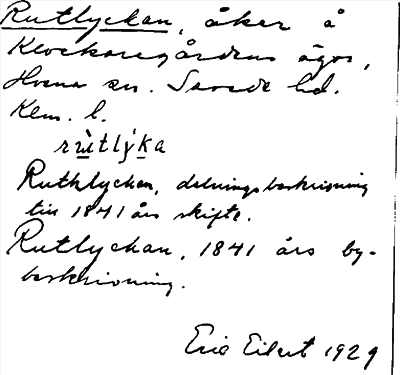 Rutlyckan, åker å
Klockaregårdens ägor,
Hvena sn. Sevede hd.
Klm. l.
rùtlýka
Rutklyckan, delningsbeskrivning
till 1841 års skifte.
Rutlyckan, 1841 års by-
beskrivning.
Eric Eilert 1929